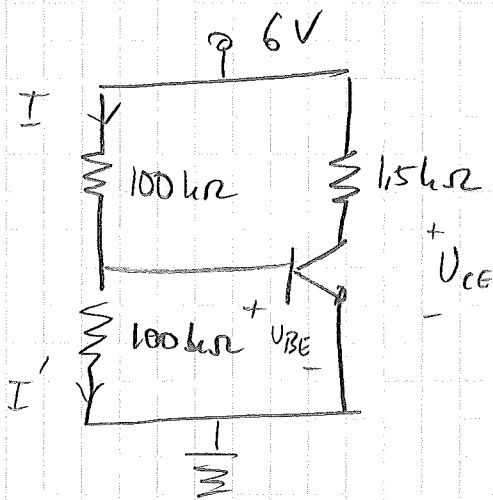 6V
I
100kΩ
1,5kΩ
+
U_CE
-
100kΩ
+
U_BE
-
I'